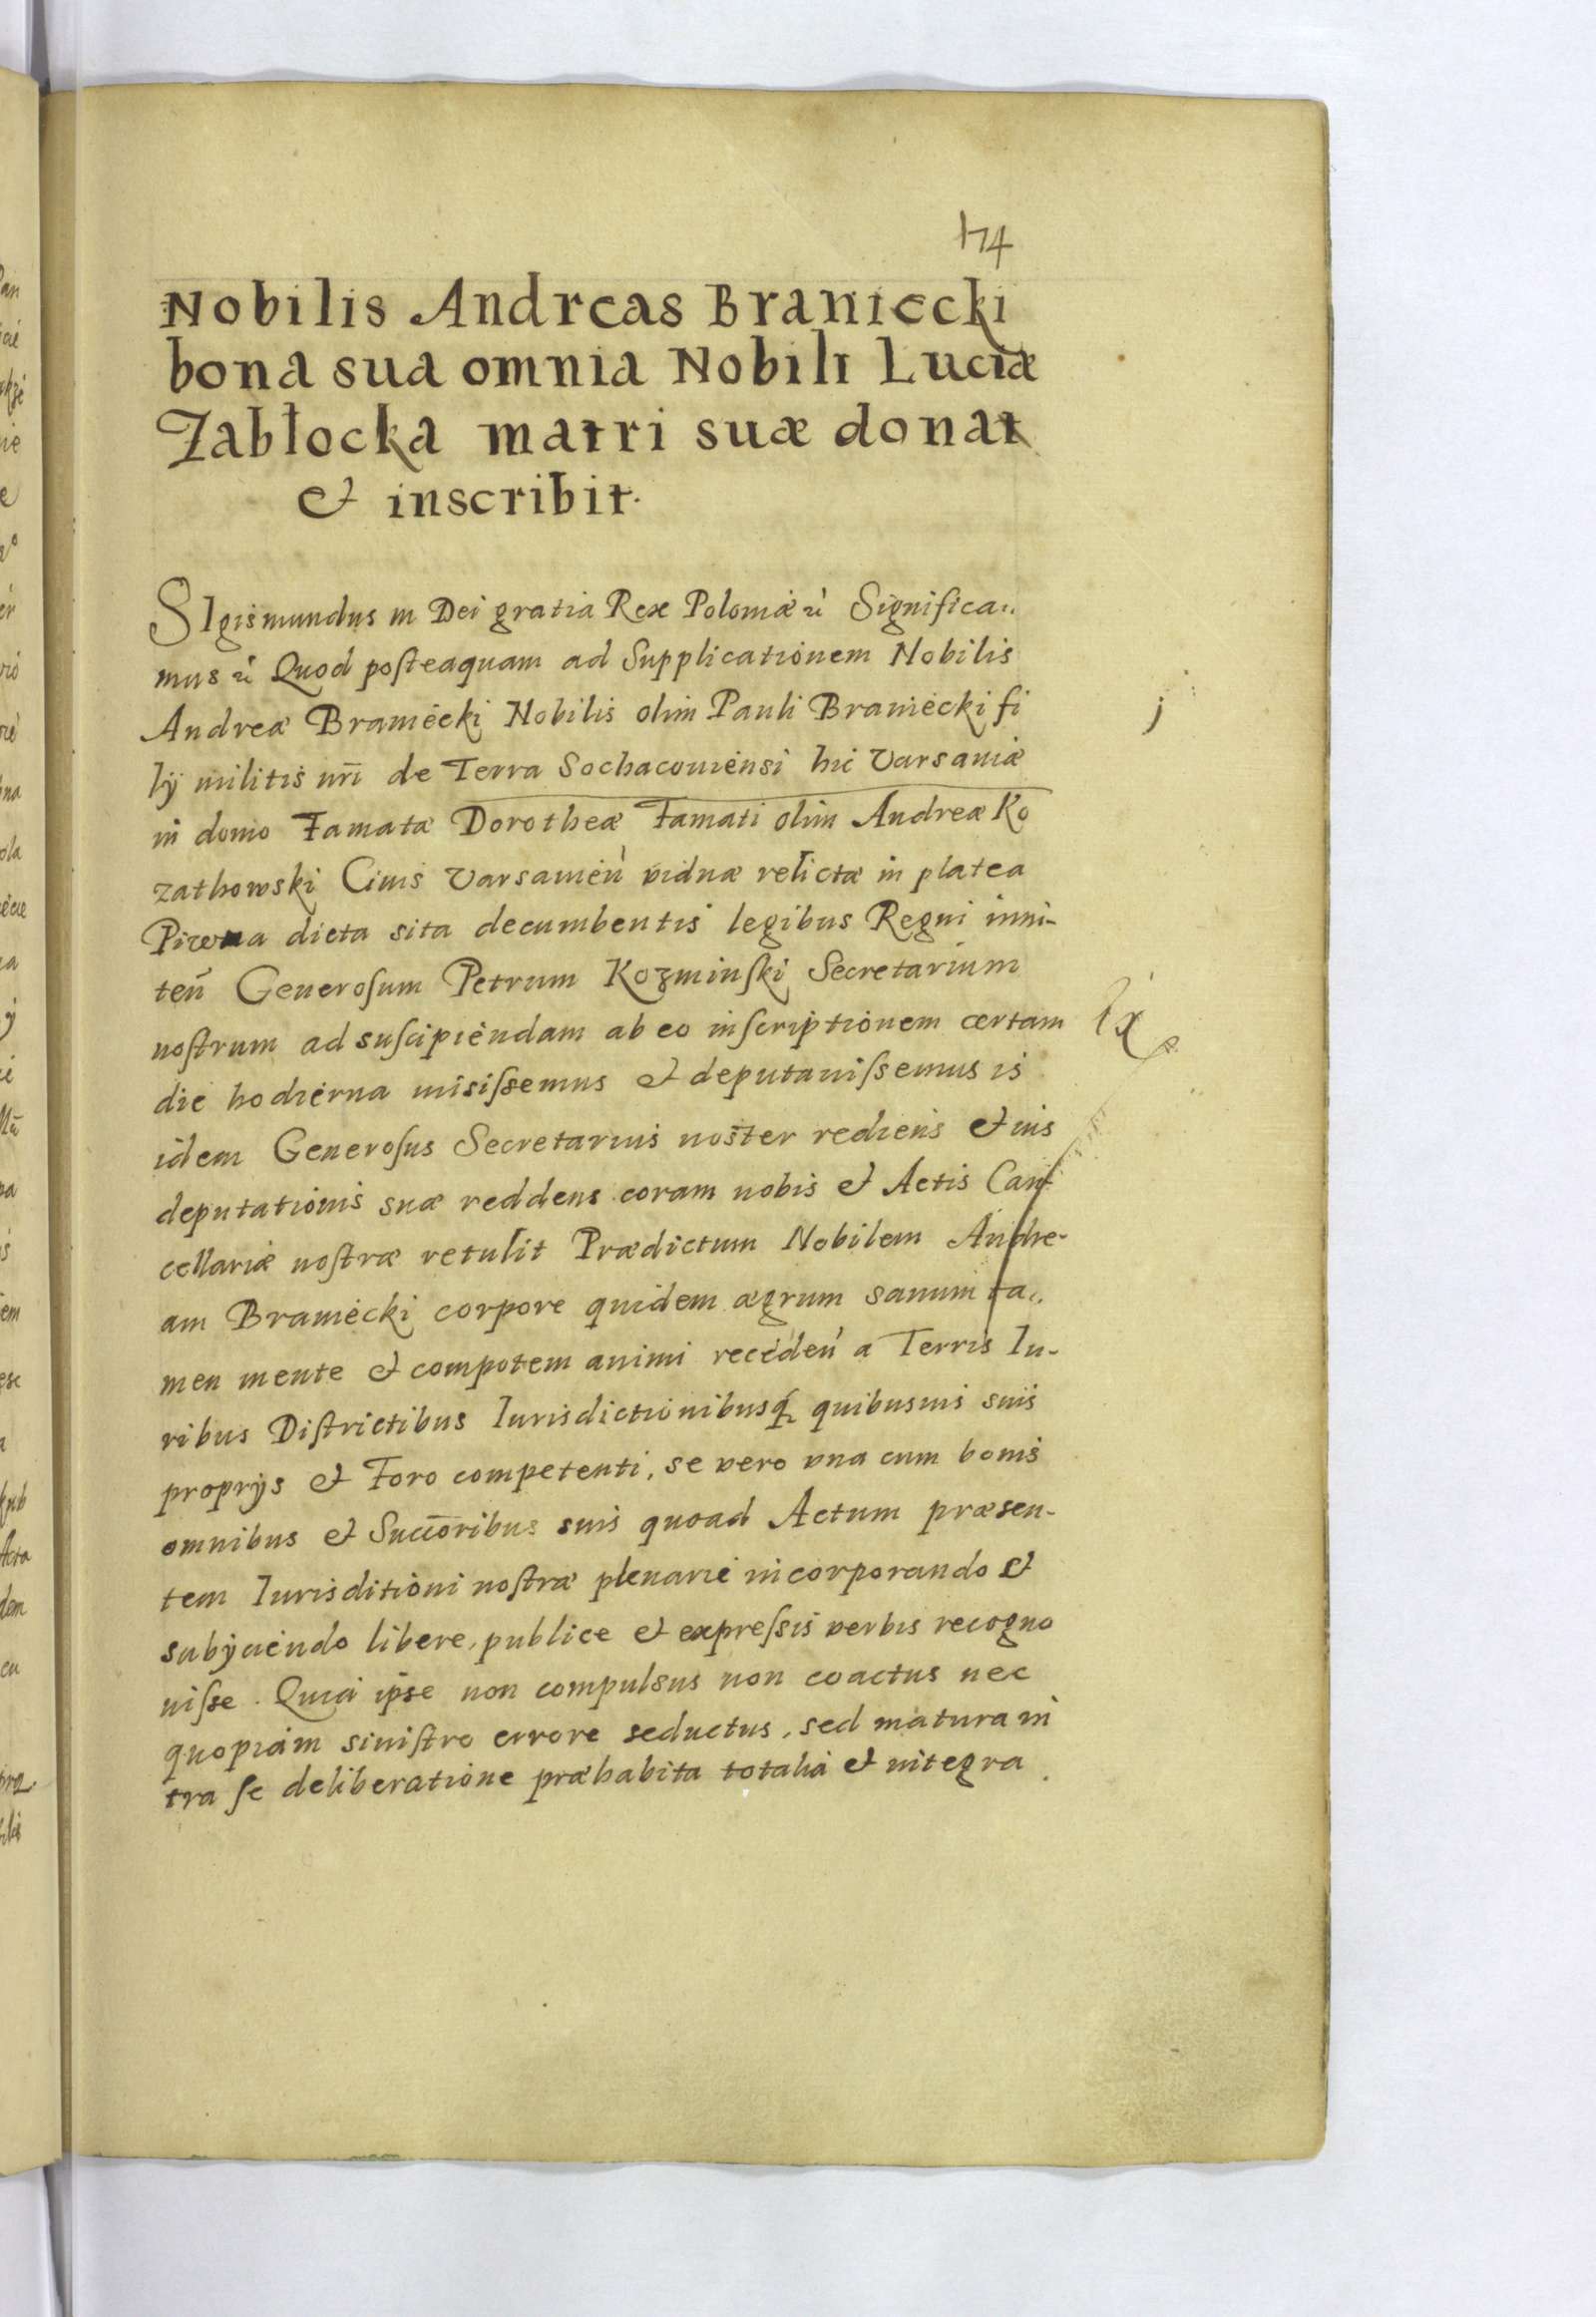 174
Nobilis Andreas Braniecki
bona sua omnia Nobili Luciæ
Zabłocka matri suæ donat
& inscribit.
SIgismundus III Dei gratia Rex Poloniæ &c Significa„
mus &c Quod posteaquam ad Supplicationem Nobilis
Andreæ Braniecki Nobilis olim Pauli Braniecki fi
lÿ militis nr̃i de Terra Sochacouiensi hic Varsauiæ
in domo Famatæ Dorotheæ Famati olim Andreæ Ko
zathowski Ciuis Varsauieñ viduæ relictæ in platea
Piwna dicta sita decumbentis legibus Regni inni-
teñ Generosum Petrum Kozminski Secretarium
nostrum ad suscipiendam ab eo inscriptionem certam
die hodierna misissemus & deputauissemus is
idem Generosus Secretarius noster rediens & uis
deputationis suæ reddens coram nobis & Actis Can
cellariæ nostræ retulit Prædictum Nobilem Andre-
am Braniecki corpore quidem ægrum sanum ta„
men mente & compotem animi recedeñ a Terris Iu-
ribus Districtibus Iurisdictionibusq3 quibusuis suis
proprÿs & Foro competenti, se vero vna cum bonis
omnibus & Succ̃oribus suis quoad Actum præsen-
tem Iurisditioni nostræ plenarie incorporando &
subÿciendo libere, publice & expressis verbis recogno
uisse. Quia ipse non compulsus non coactus nec
quopiam sinistro errore seductus, sed matura in
tra se deliberatione præhabita totalia & integra